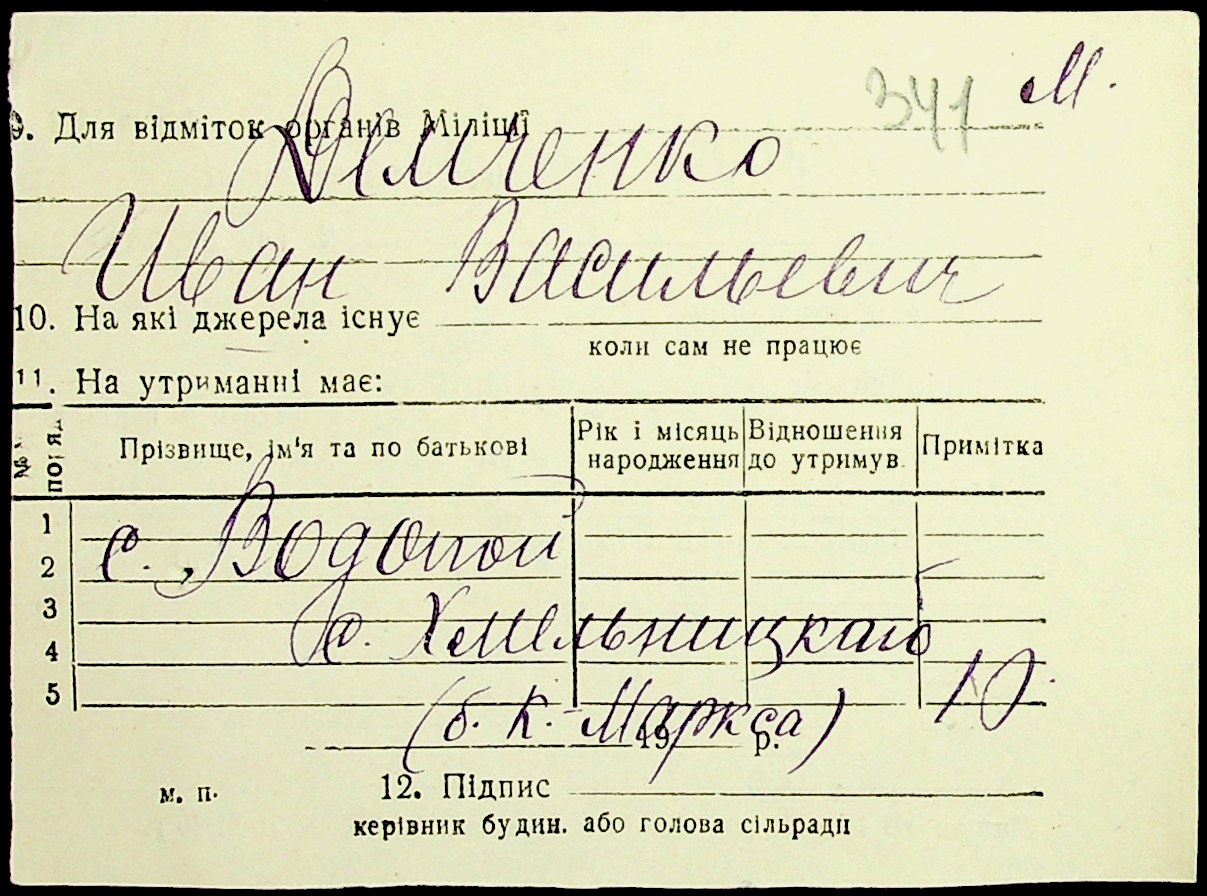 341 М.
9. Для відміток органів Міліції
Демченко
Иван Васильевич
10. На які джерела існує
коли сам не працює
11. На утриманні має:
№ поряд
Прізвище, ім'я та по батькові
Рік і місяць народження
Відношення до утримув.
Примітка
1
с. Водопой
2
3
Хмельницкаго
4
5
10.
(б. К. Маркса)
19 р.
м. п.
12. Підпис
керівник будин. або голова сільради